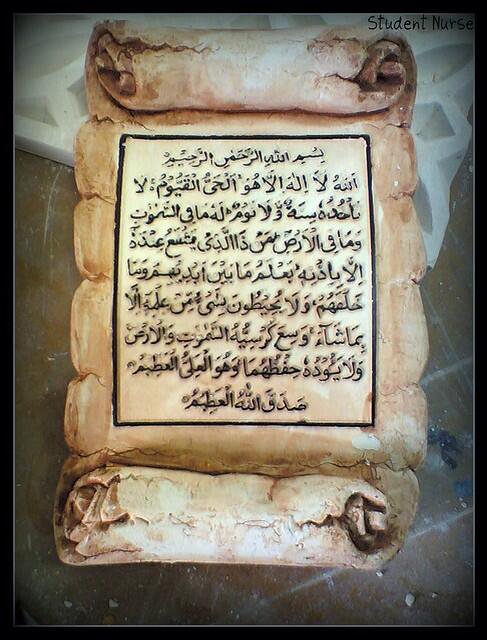 Student Nurse
بِسْمِ اللهِ الرَّحْمٰنِ الرَّحِيْمِ
اَللهُ لَا اِلٰهَ اِلَّا هُوَ اَلْحَىُّ الْقَيُّوْمُ لَا
تَأْخُذُهُ سِنَةٌ وَّلَا نَوْمٌ لَهُ مَا فِى السَّمٰوٰتِ
وَمَا فِى الْاَرْضِ مَنْ ذَا الَّذِىْ يَشْفَعُ عِنْدَهٗ
اِلَّا بِاِذْنِهٖ يَعْلَمُ مَا بَيْنَ اَيْدِيْهِمْ وَمَا
خَلْفَهُمْ وَلَا يُحِيْطُوْنَ بِشَىْءٍ مِّنْ عِلْمِهٖ اِلَّا
بِمَا شَآءَ وَسِعَ كُرْسِيُّهُ السَّمٰوٰتِ وَالْاَرْضَ
وَلَا يَئُوْدُهٗ حِفْظُهُمَا وَهُوَ الْعَلِىُّ الْعَظِيْمُ
صَدَقَ اللهُ الْعَظِيْمُ